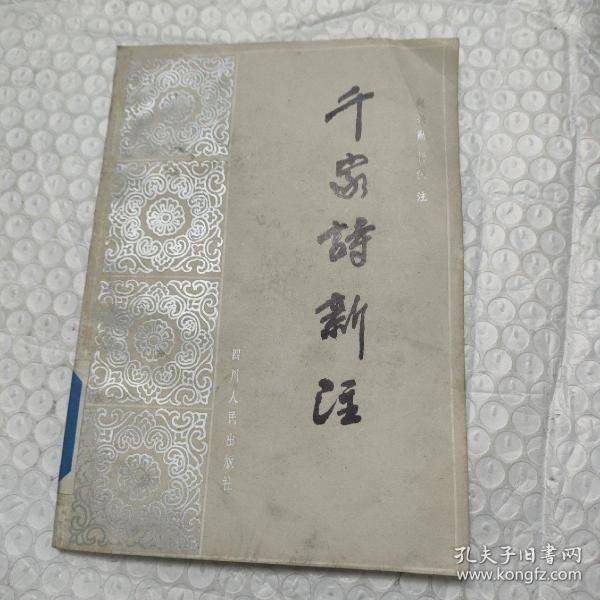 千家詩新注
注
四川人民出版社
孔夫子旧書网
www.kongfz.com